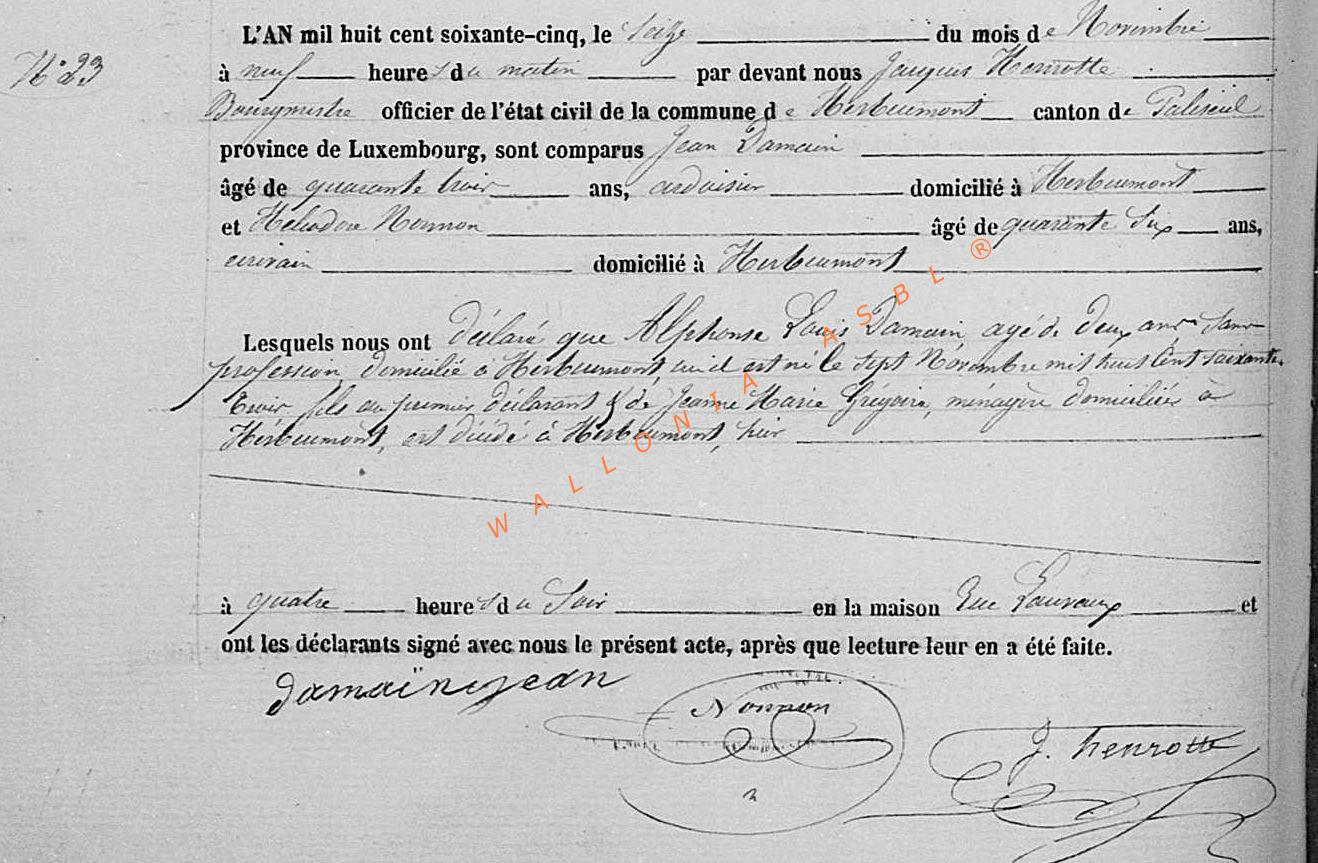 N° 23
L'AN mil huit cent soixante-cinq, le Seize du mois de Novembre
à neuf heures du matin par devant nous Jacques Henrotte
Bourgmestre officier de l'état civil de la commune de Herbeumont canton de Paliseul
province de Luxembourg, sont comparus Jean Damain
âgé de quarante trois ans, ardoisier domicilié à Herbeumont
et Héliodore Nonnon âgé de quarante Six ans,
écrivain domicilié à Herbeumont
Lesquels nous ont déclaré que Alphonse Louis Damain, agé de deux ans Sans
profession, domicilié à Herbeumont où il est né le sept Novembre mil huit Cent soixante
trois, fils du premier déclarant & de Jeanne Marie Grégoire, ménagère domiciliée à
Herbeumont, est décédé à Herbeumont, hier
à quatre heures du Soir en la maison Rue Lauvaux et
ont les déclarants signé avec nous le présent acte, après que lecture leur en a été faite.
damain jean
Nonnon
J. henrotte
WALLONIA ASBL ®